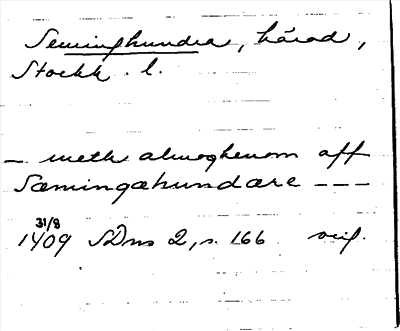 Seminghundra, härad,
Stockh. l.
– meth almoghenom aff
Sæmingæhundære – – –
31/8
1409 SDns 2, s. 166 orig.